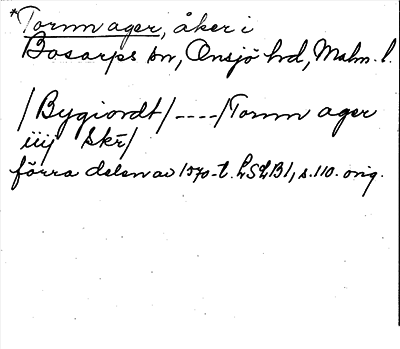 *Tormm ager, åker i
Bosarps sn, Onsjö hd, Malm. l.
/Bygiordt/----/Tormm ager
iiij Skr̄/
förra delen av 1570-t. LSLB1, s. 110. orig.